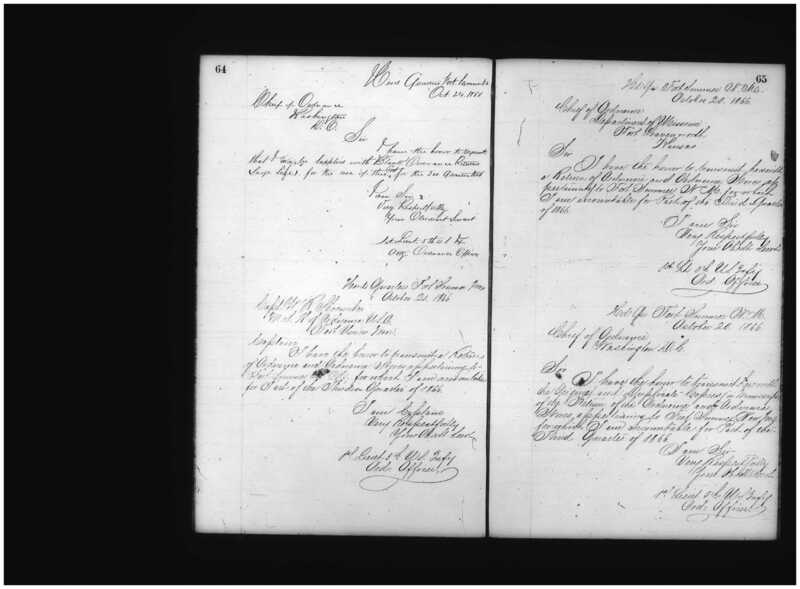 64
Head Quarters Fort Sumner
Oct 24, 1866
Chief of Ordnance
Washington
D.C.
Sir
I have the honor to request
that I may be supplied with Blank Ordnance
for the use of this for the 3rd Quarter 1866
I am Sir
Very Respectfully
Your Obedient Servant
1st Lieut 5th U S Inf
Ordnance Officer
Head Quarters Fort Sumner
October 20, 1866
Captain
of Ordnance U.S.A.
Fort Union
Captain
I have the honor to transmit a Return
of Ordnance and Ordnance Stores appertaining to
Fort Sumner for which I am accountable
for Part of the Quarter of 1866
I am Captain
Very Respectfully
Your Obdt Servt
1st Lieut 5th U.S. Infy
Ord. Officer
65
Hd Qrs Fort Sumner N. Mex.
October 20. 1866
Chief of Ordnance
Department of Missouri
Fort Leavenworth
Kansas
Sir
I have the honor to transmit herewith
a Return of Ordnance and Ordnance Stores ap
pertaining to Fort Sumner N. M. for which
I am accountable for Part of the Third Quarter
of 1866
I am Sir
Very Respectfully
Your Obdt Servt
1st Lt 5th U.S. Infy
Ord. Officer
Hd Qrs Fort Sumner N. M.
October 20 1866
Chief of Ordnance
Washington D.C.
Sir
I have the honor to transmit herewith
the Original and duplicate
of my Return of the Ordnance and Ordnance
Stores appertaining to Fort Sumner New Mex
for which I am accountable for Part of the
Third Quarter of 1866
I am Sir
Very Respectfully
Your Obdt Servt
1st Lieut 5th U.S. Infy
Ord. Officer